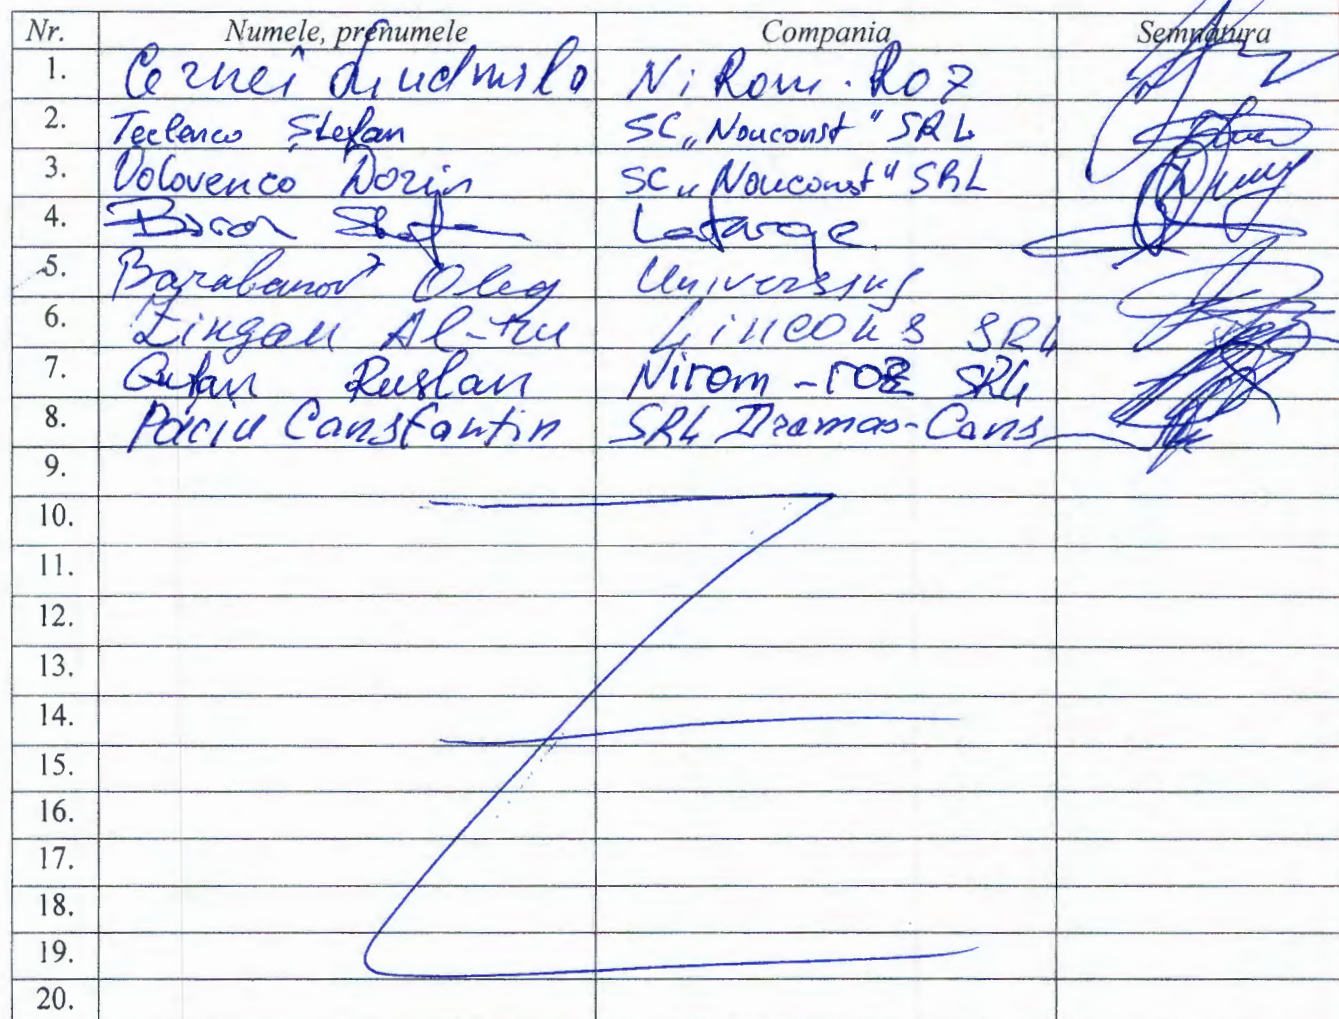 Nr. Numele, prenumele Compania Semnătura
1. Cernei Liudmila NiRom-Roz
2. Teclenco Ștefan SC „Nouconst" SRL
3. Volovenco Dorin SC „Nouconst" SRL
4. Lafarge
5. Barabanov Oleg Universsus
6. Zingan Al-tru Lincons SRL
7. Guțan Ruslan Nirom-roz SRL
8. Paciu Constantin SRL Dramas-Cons
9.
10.
11.
12.
13.
14.
15.
16.
17.
18.
19.
20.